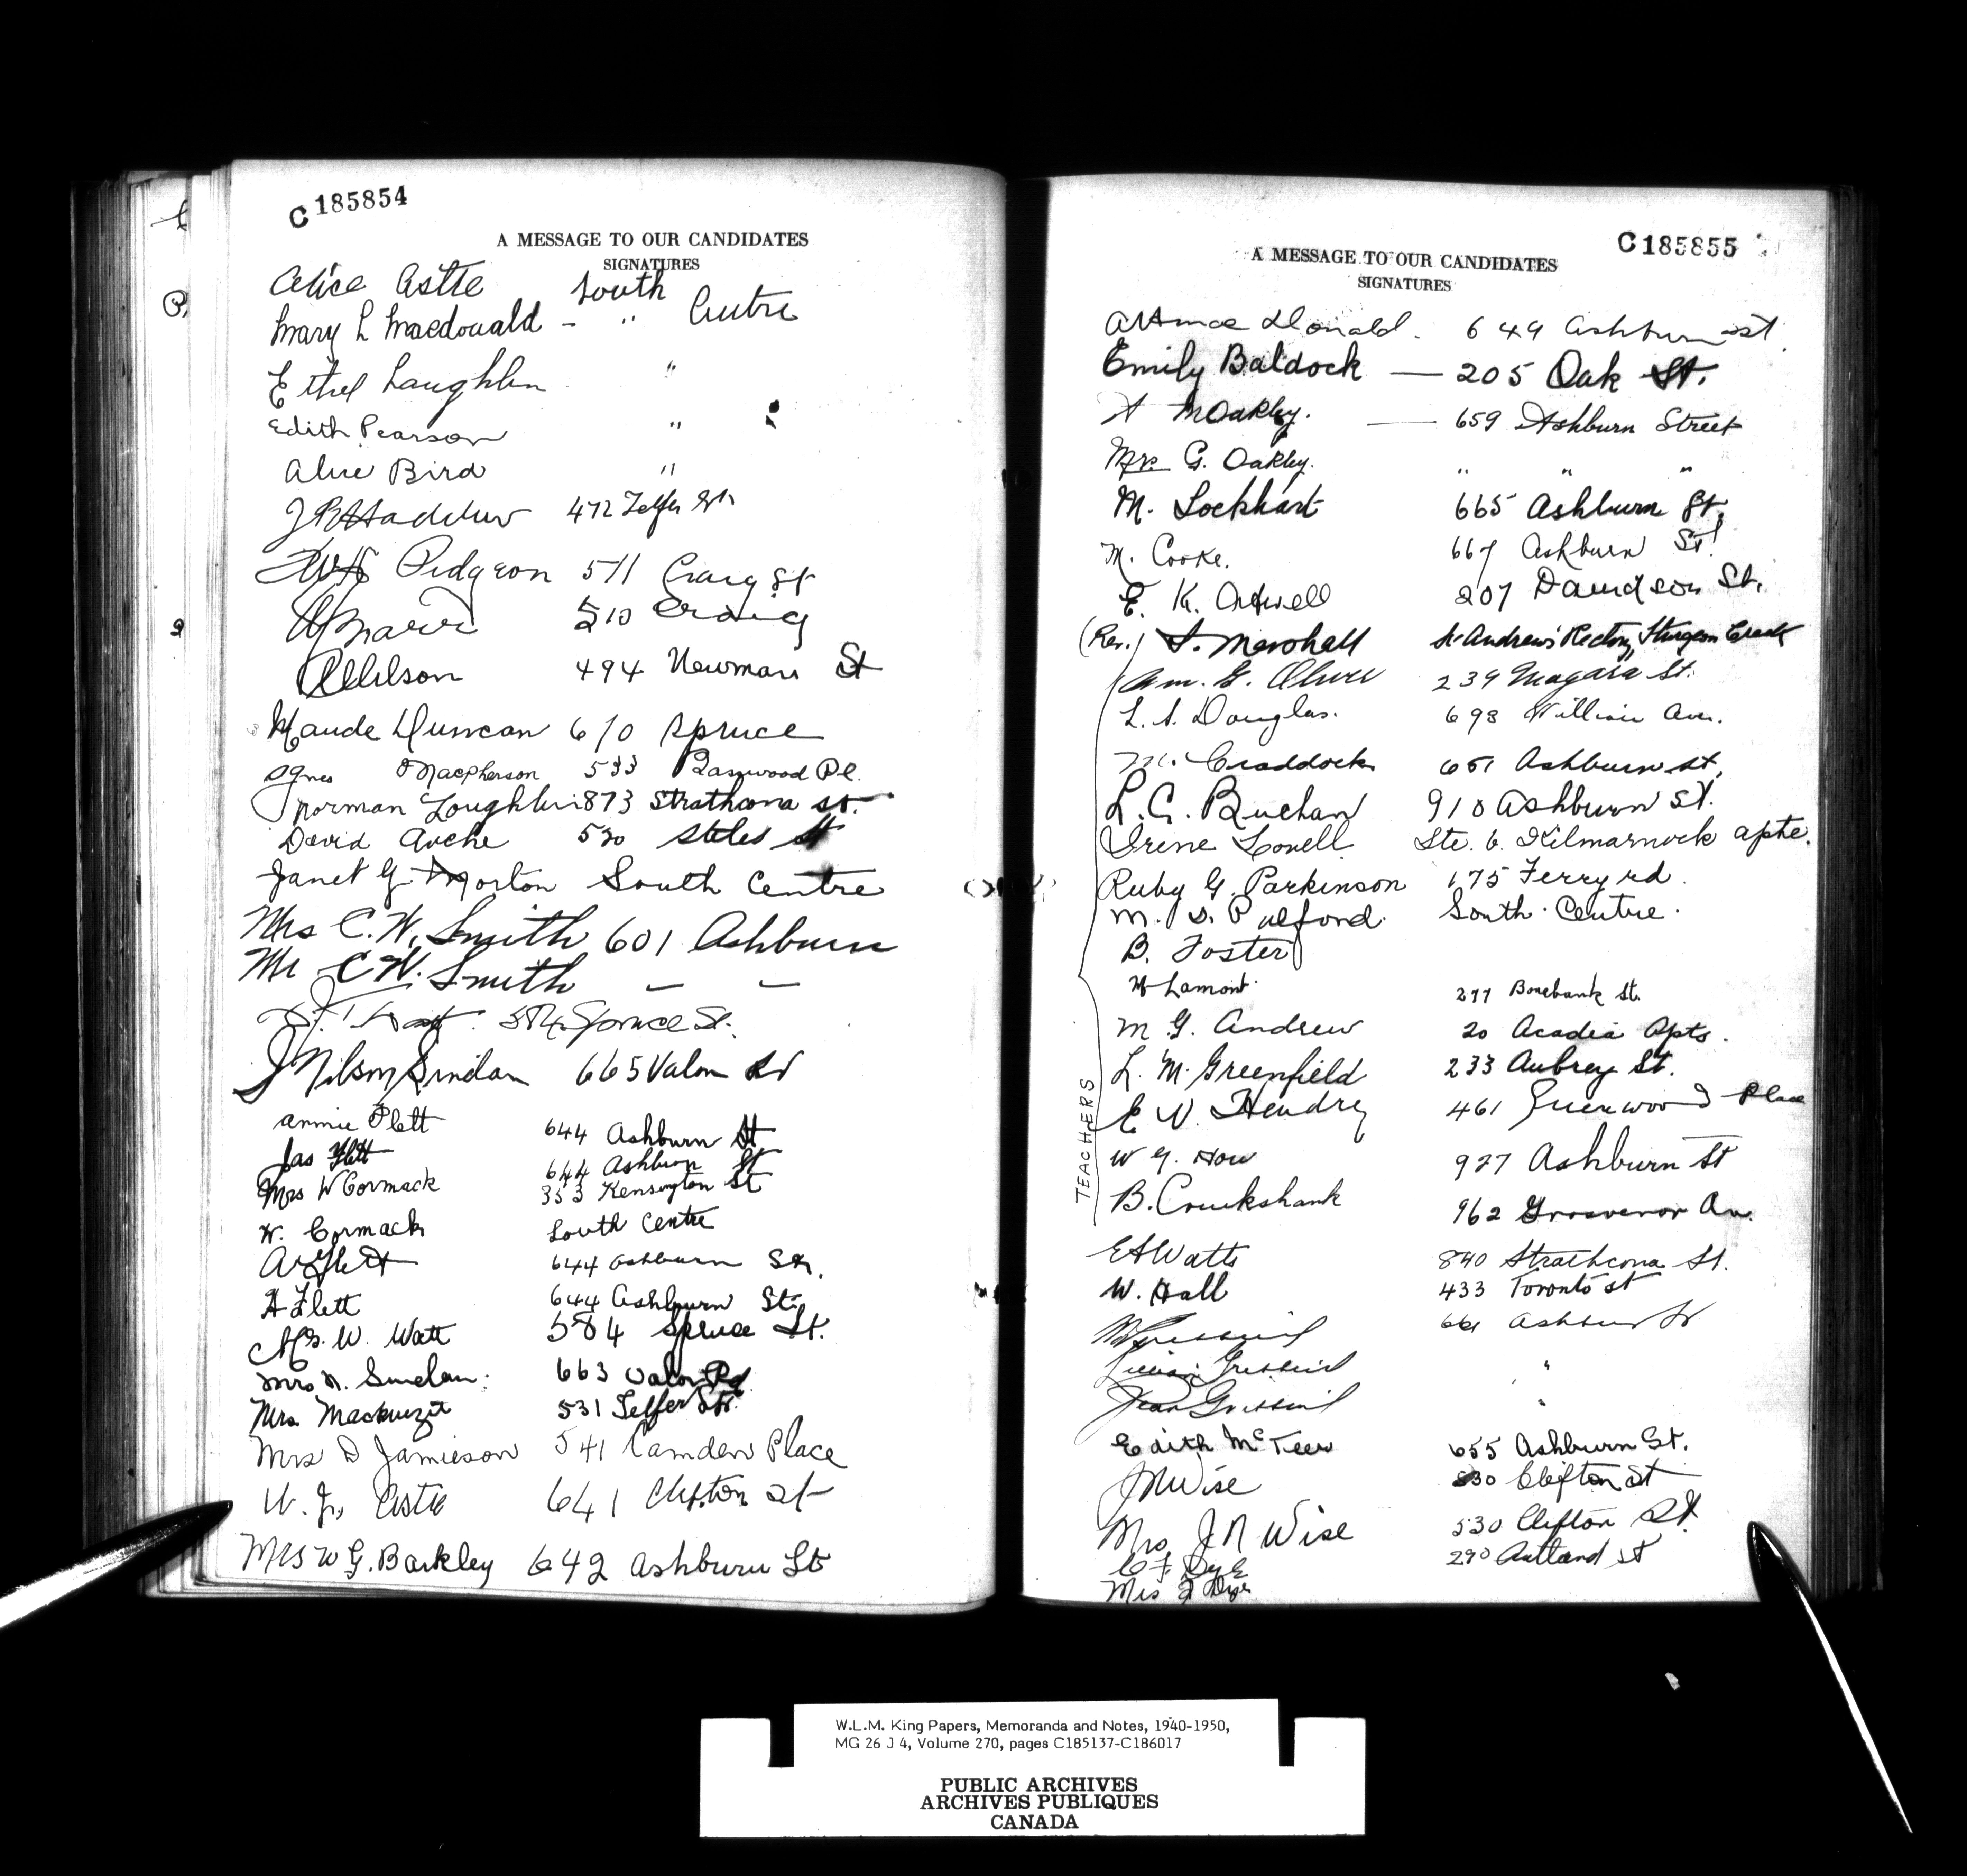 C185854
A MESSAGE TO OUR CANDIDATES
SIGNATURES
Alice Astle South Centre
Mary L Macdonald - "
Ethel Laughlin "
Edith Pearson "
Alice Bird "
472 Telfer St
Pidgeon 511 Craig St
510 Craig
494 Newman St
Maude Duncan 610 Spruce
Agnes Macpherson 533 Basswood Pl.
Norman Loughlin 873 Strathcona St.
David 530 Stiles St
Janet G. Morton South Centre
Mrs C. W. Smith 601 Ashburn
Mr C W. Smith — —
Spruce St.
J Nilson Sinclair 665 Valour Rd
Annie Flett 644 Ashburn St
Jas Flett 644 Ashburn St
Mrs W Cormack 353 Kensington St
W. Cormack South Centre
A Flett 644 Ashburn St.
H Flett 644 Ashburn St.
Mrs. W. Watt 584 Spruce St.
Mrs N. Sinclair. 663 Valour Rd
Mrs. Mackenzie 531 Telfer St.
Mrs D Jamieson 541 Camden Place
W. J. Astle 641 Clifton St
Mrs W G. Barkley 642 Ashburn St
C185855
A MESSAGE TO OUR CANDIDATES
SIGNATURES
Donald. 649 Ashburn St.
Emily Baldock — 205 Oak St.
M Oakley. — 659 Ashburn Street
Mrs G. Oakley. " " "
M. Lockhart 665 Ashburn St.
M. Cooke. 667 Ashburn St.
E. K. Atwell 207 Davidson St.
(Rev.) S. Marshall St Andrew's Rectory, Sturgeon Creek
G. Oliver 239 Niagara St.
L. A. Douglas. 698 William Ave.
M. Craddock 651 Ashburn St.
L. C. Buchan 910 Ashburn St.
Irene Lovell Ste. 6. Kilmarnock Apts.
Ruby G. Parkinson 175 Ferry rd.
M. D. Pulford. South Centre.
B. Foster
M Lamont. 277 Bonebank St.
M. G. Andrew 20 Acadia Apts.
L. M. Greenfield 233 Aubrey St.
E V. Hendry 461 Greenwood Place
W G. How 927 Ashburn St
B. Cruikshank 962 Grosvenor Av.
TEACHERS
E A Watts 890 Strathcona St.
W. Hall 433 Toronto St
661 Ashburn St
Lillian "
Jean "
Edith McTeer 655 Ashburn St.
J N Wise 530 Clifton St
Mrs J N Wise 530 Clifton St.
C F Dyer 290 Rutland St
Mrs F Dyer
W.L.M. King Papers, Memoranda and Notes, 1940-1950,
MG 26 J 4, Volume 270, pages C185137-C186017
PUBLIC ARCHIVES
ARCHIVES PUBLIQUES
CANADA